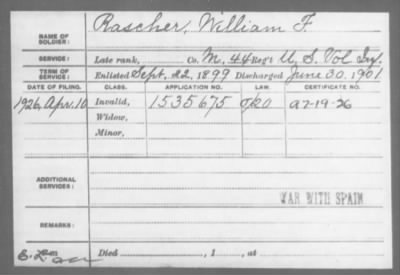 NAME OF SOLDIER: Rascher, William F.
SERVICE: Late rank, Co. M, 44 Reg't U. S. Vol Inf.
TERM OF SERVICE: Enlisted Sept. 22, 1899 Discharged June 30, 1901
DATE OF FILING. CLASS. APPLICATION NO. LAW. CERTIFICATE NO.
1926, Apr. 10 Invalid, 1535675
Widow,
Minor,
ADDITIONAL SERVICES:
WAR WITH SPAIN
REMARKS:
Died , 1 , at